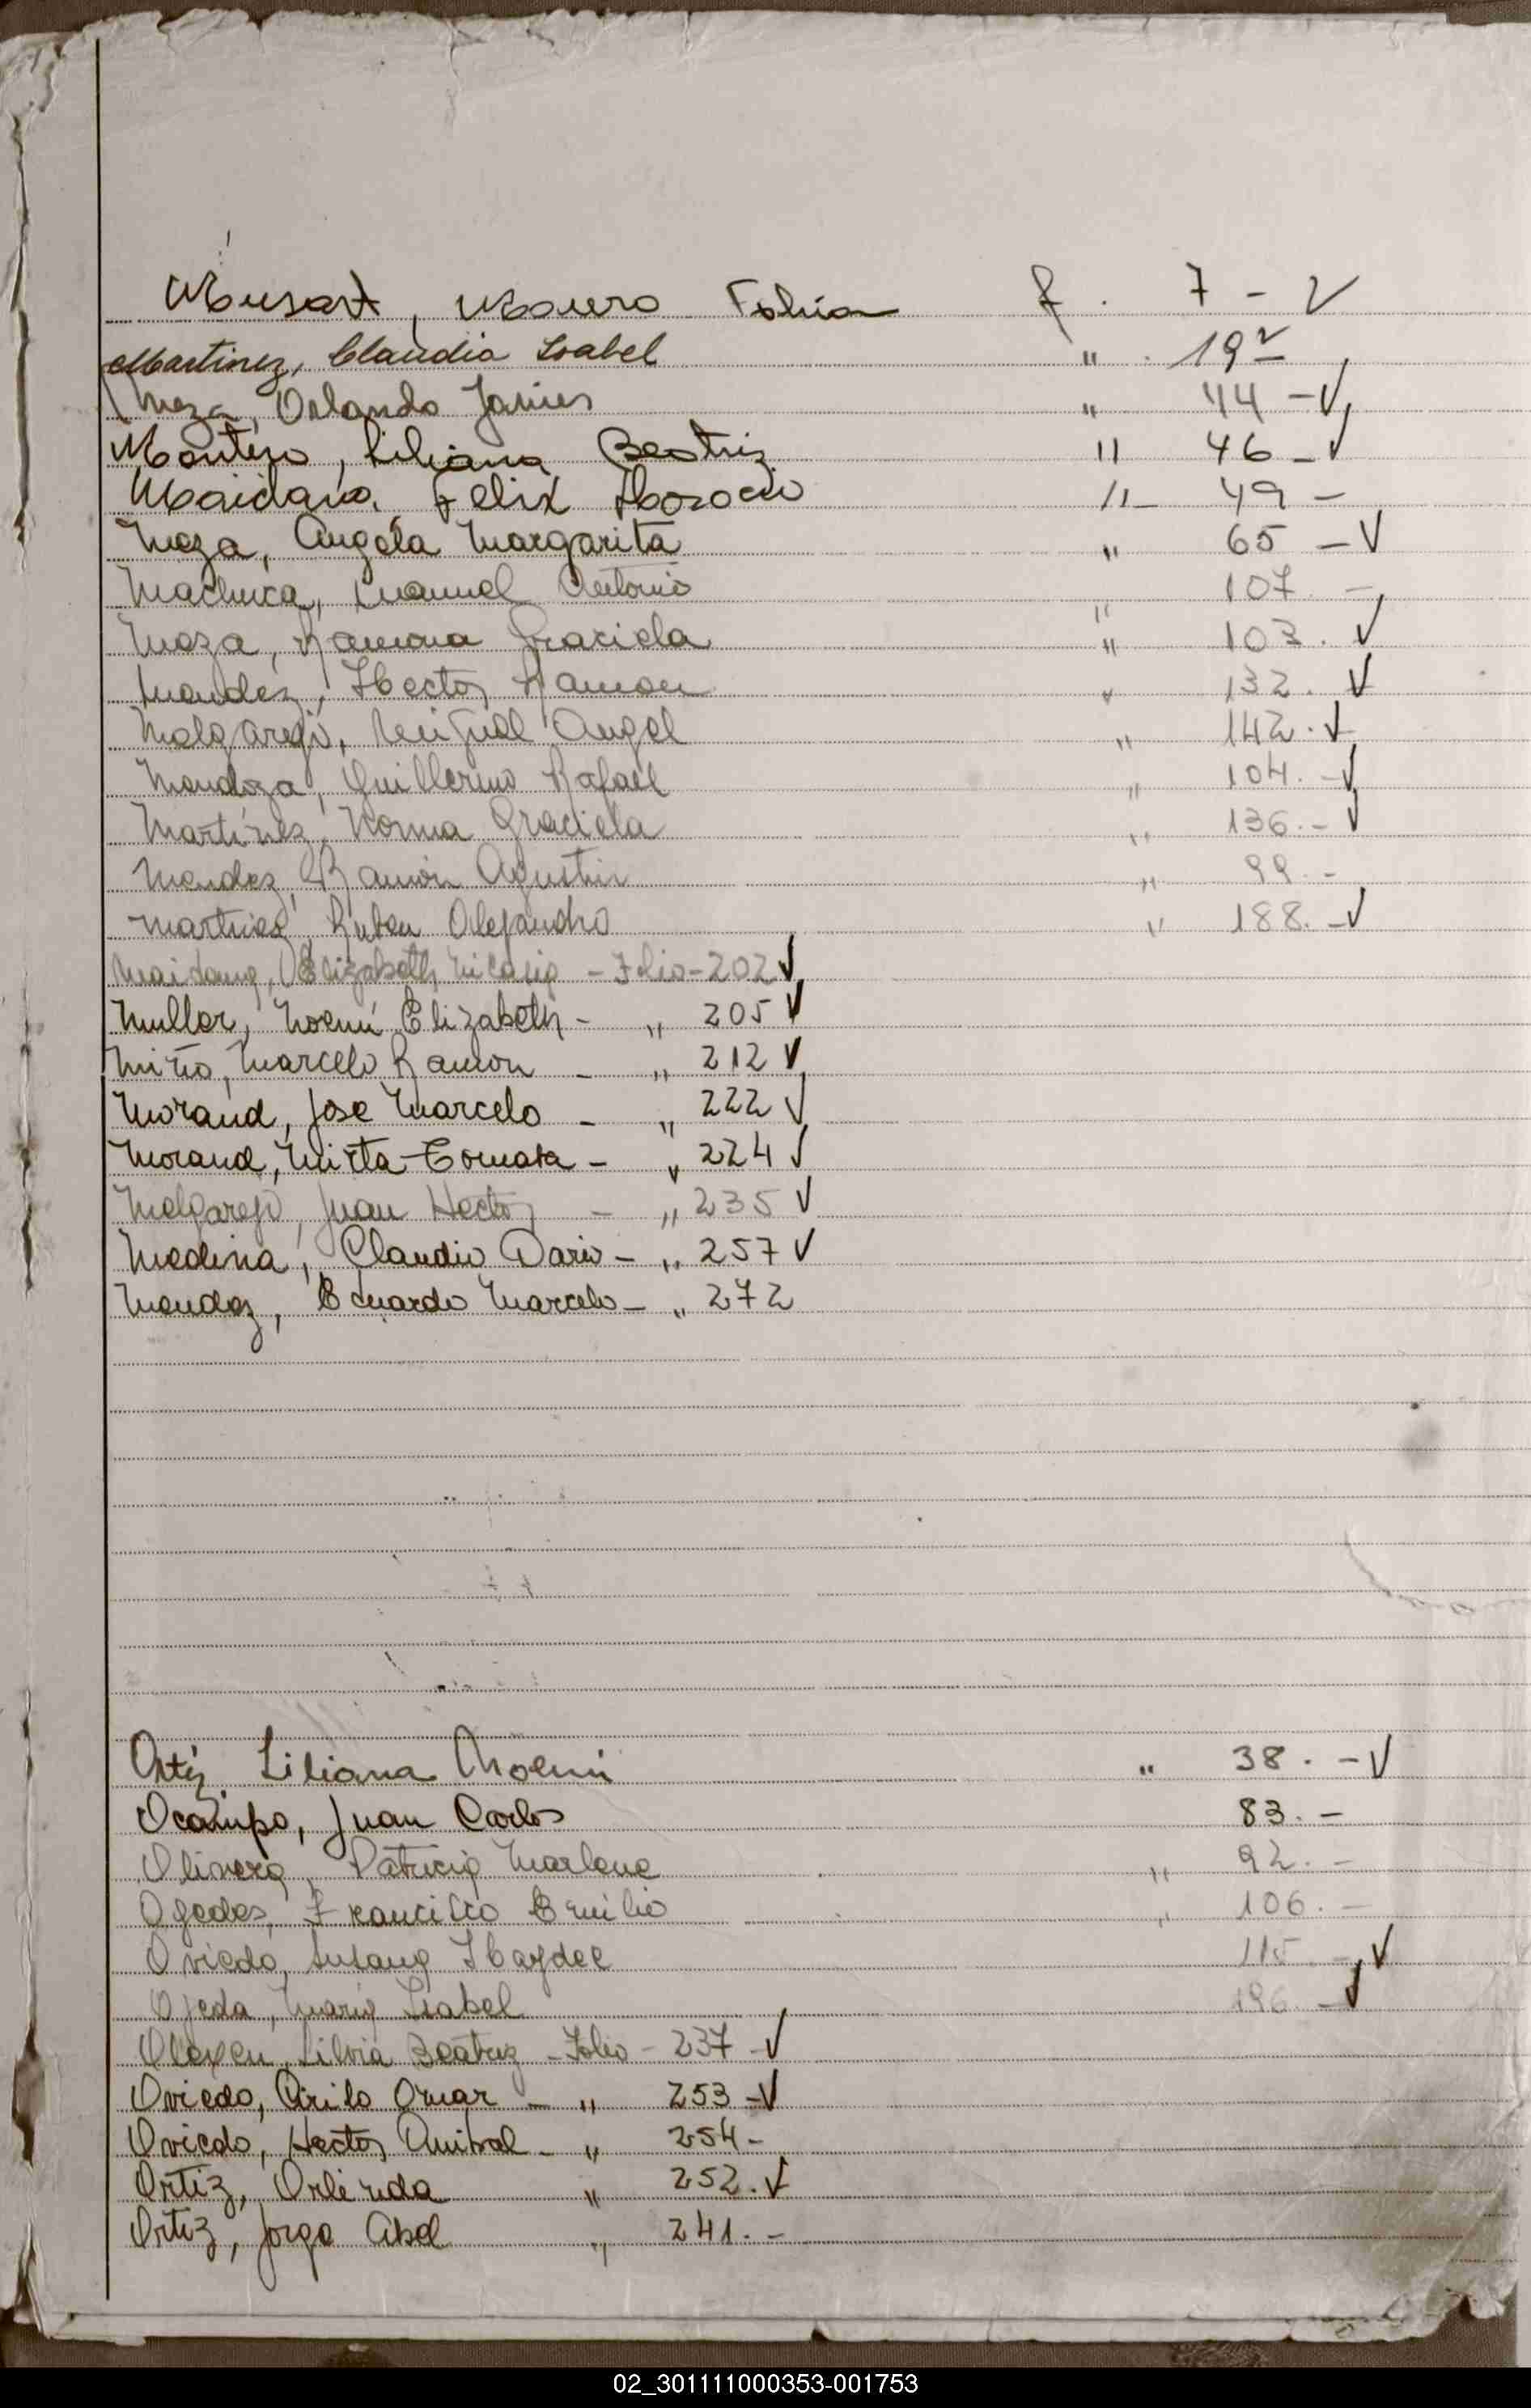 Musart, Mauro Fabian f. 7 - V
Martinez, Claudia Isabel " . 19 v
Meza, Orlando Javier " 44 - V
Montero, Liliana Beatriz " 46 - V
Maidana, Felix Horacio " 49 -
Meza, Angela Margarita " 65 - V
Machuca, Manuel Antonio " 107. -
Meza, Ramona Graciela " 103. V
Mendez, Hector Ramon " 132. V
Melgarejo, Miguel Angel " 142. V
Mendoza, Guillermo Rafael " 104. - V
Martinez, Norma Graciela " 136. - V
Mendez, Ramón Agustin " 99. -
Martinez, Ruben Alejandro " 188. - V
Maidana, Elizabeth Nicasia - Folio - 202 V
Muller, Noemí Elizabeth - " 205 V
Miño, Marcelo Ramon - " 212 V
Morand, Jose Marcelo - " 222 V
Morand, Mirta - " 224 V
Melgarejo, Juan Hector - " 235 V
Medina, Claudio Dario - " 257 V
Mendez, Eduardo Marcelo - " 272
Ortiz Liliana Noemi " 38. - V
Ocampo, Juan Carlos 83. -
Olivera, Patricia Marlene " 92. -
Francisco Emilio " 106. -
Oviedo, Susana Haydee 115 - V
Ojeda, Maria Isabel 196. - V
Silvia Beatriz - Folio - 237 - V
Oviedo, Cirilo Omar - " 253 - V
Oviedo, Hector Anibal - " 254 -
Ortiz, Orlinda " 252. V
Ortiz, Jorge Abel " 241. -
02_301111000353-001753